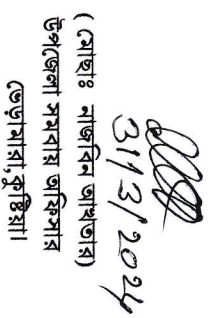 31/3/2024
( মোছাঃ নাজনিন আখতার)
উপজেলা সমবায় অফিসার
ভেড়ামারা,কুষ্টিয়া।